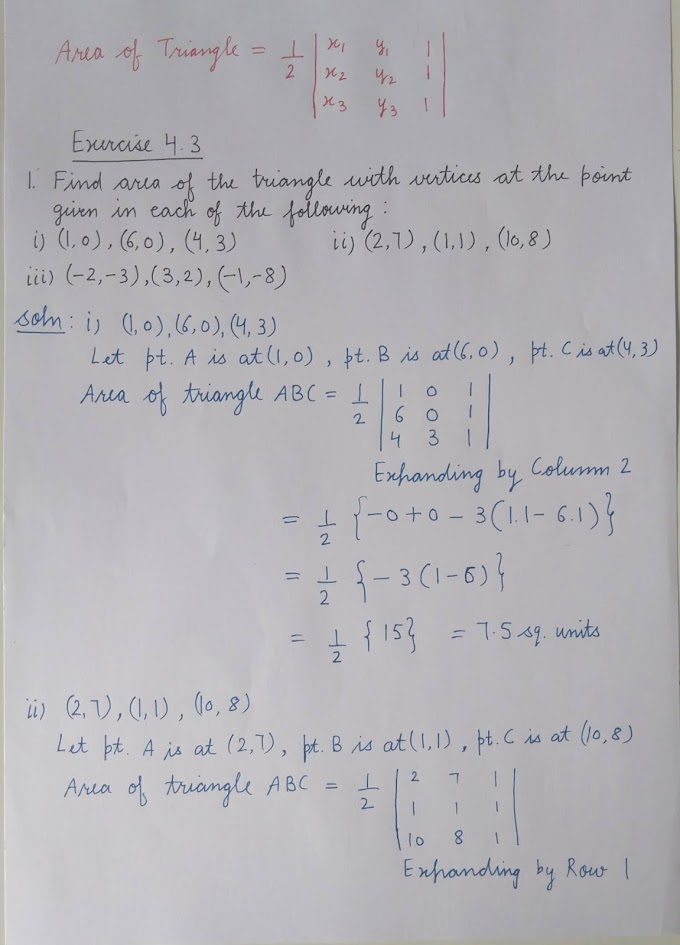 Area of Triangle = 1/2 | x₁ y₁ 1 |
| x₂ y₂ 1 |
| x₃ y₃ 1 |
Exercise 4.3
1. Find area of the triangle with vertices at the point
given in each of the following :
i) (1,0), (6,0), (4,3) ii) (2,7), (1,1), (10,8)
iii) (-2,-3), (3,2), (-1,-8)
Soln : i) (1,0), (6,0), (4,3)
Let pt. A is at (1,0), pt. B is at (6,0), pt. C is at (4,3)
Area of triangle ABC = 1/2 | 1 0 1 |
| 6 0 1 |
| 4 3 1 |
Expanding by Column 2
= 1/2 {-0+0-3(1.1-6.1)}
= 1/2 {-3(1-6)}
= 1/2 {15} = 7.5 sq. units
ii) (2,7), (1,1), (10,8)
Let pt. A is at (2,7), pt. B is at (1,1), pt. C is at (10,8)
Area of triangle ABC = 1/2 | 2 7 1 |
| 1 1 1 |
| 10 8 1 |
Expanding by Row 1